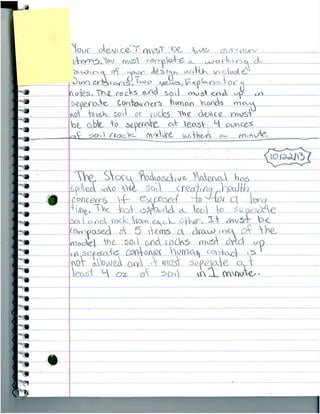 Your device must be five
items. You must complete a working d
drawing of your design with include
Dimentions, Two views, Explanatory
notes. The rocks and soil must end up in
seperate containers human hands may
not touch soil or rocks The device must
be able to seperate at least 4 ounces
of soil/rock mixture within a minute
10/22/13
The Story Radioactive Material has
spilled into the soil creating health
concerns if exposed to for a long
time. The task build a tool to seperate
soil and rock from each other. It must be
composed of 5 items a drawing of the
model the soil and rocks must end up
in seperate container human contact is
not allowed and it must seperate at
least 4 oz of soil in 1 minute.